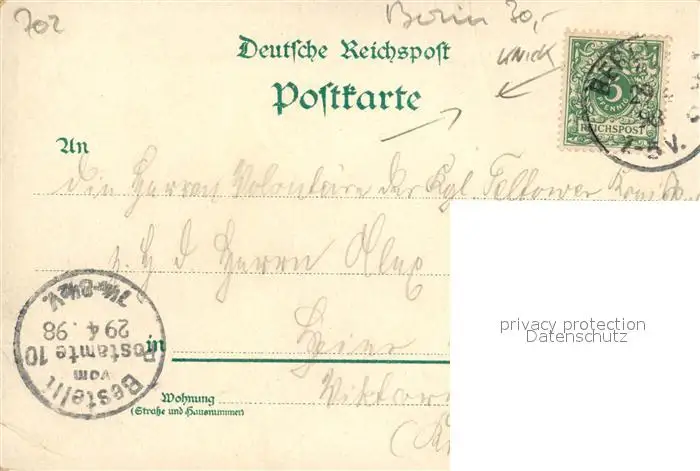 702
Berlin 30,-
Deutsche Reichspost
KNICK
Postkarte
5
PFENNIG
REICHSPOST
BERLIN
98
V.
An
die Herren Volontäre der Kgl. Teltower Kreis
z. H. d. Herrn Alex
in hier
Wohnung Viktoria
(Straße und Hausnummer)
Bestellt
vom
Postamte 10
29 4. 98
7¼-8½V.
privacy protection
Datenschutz